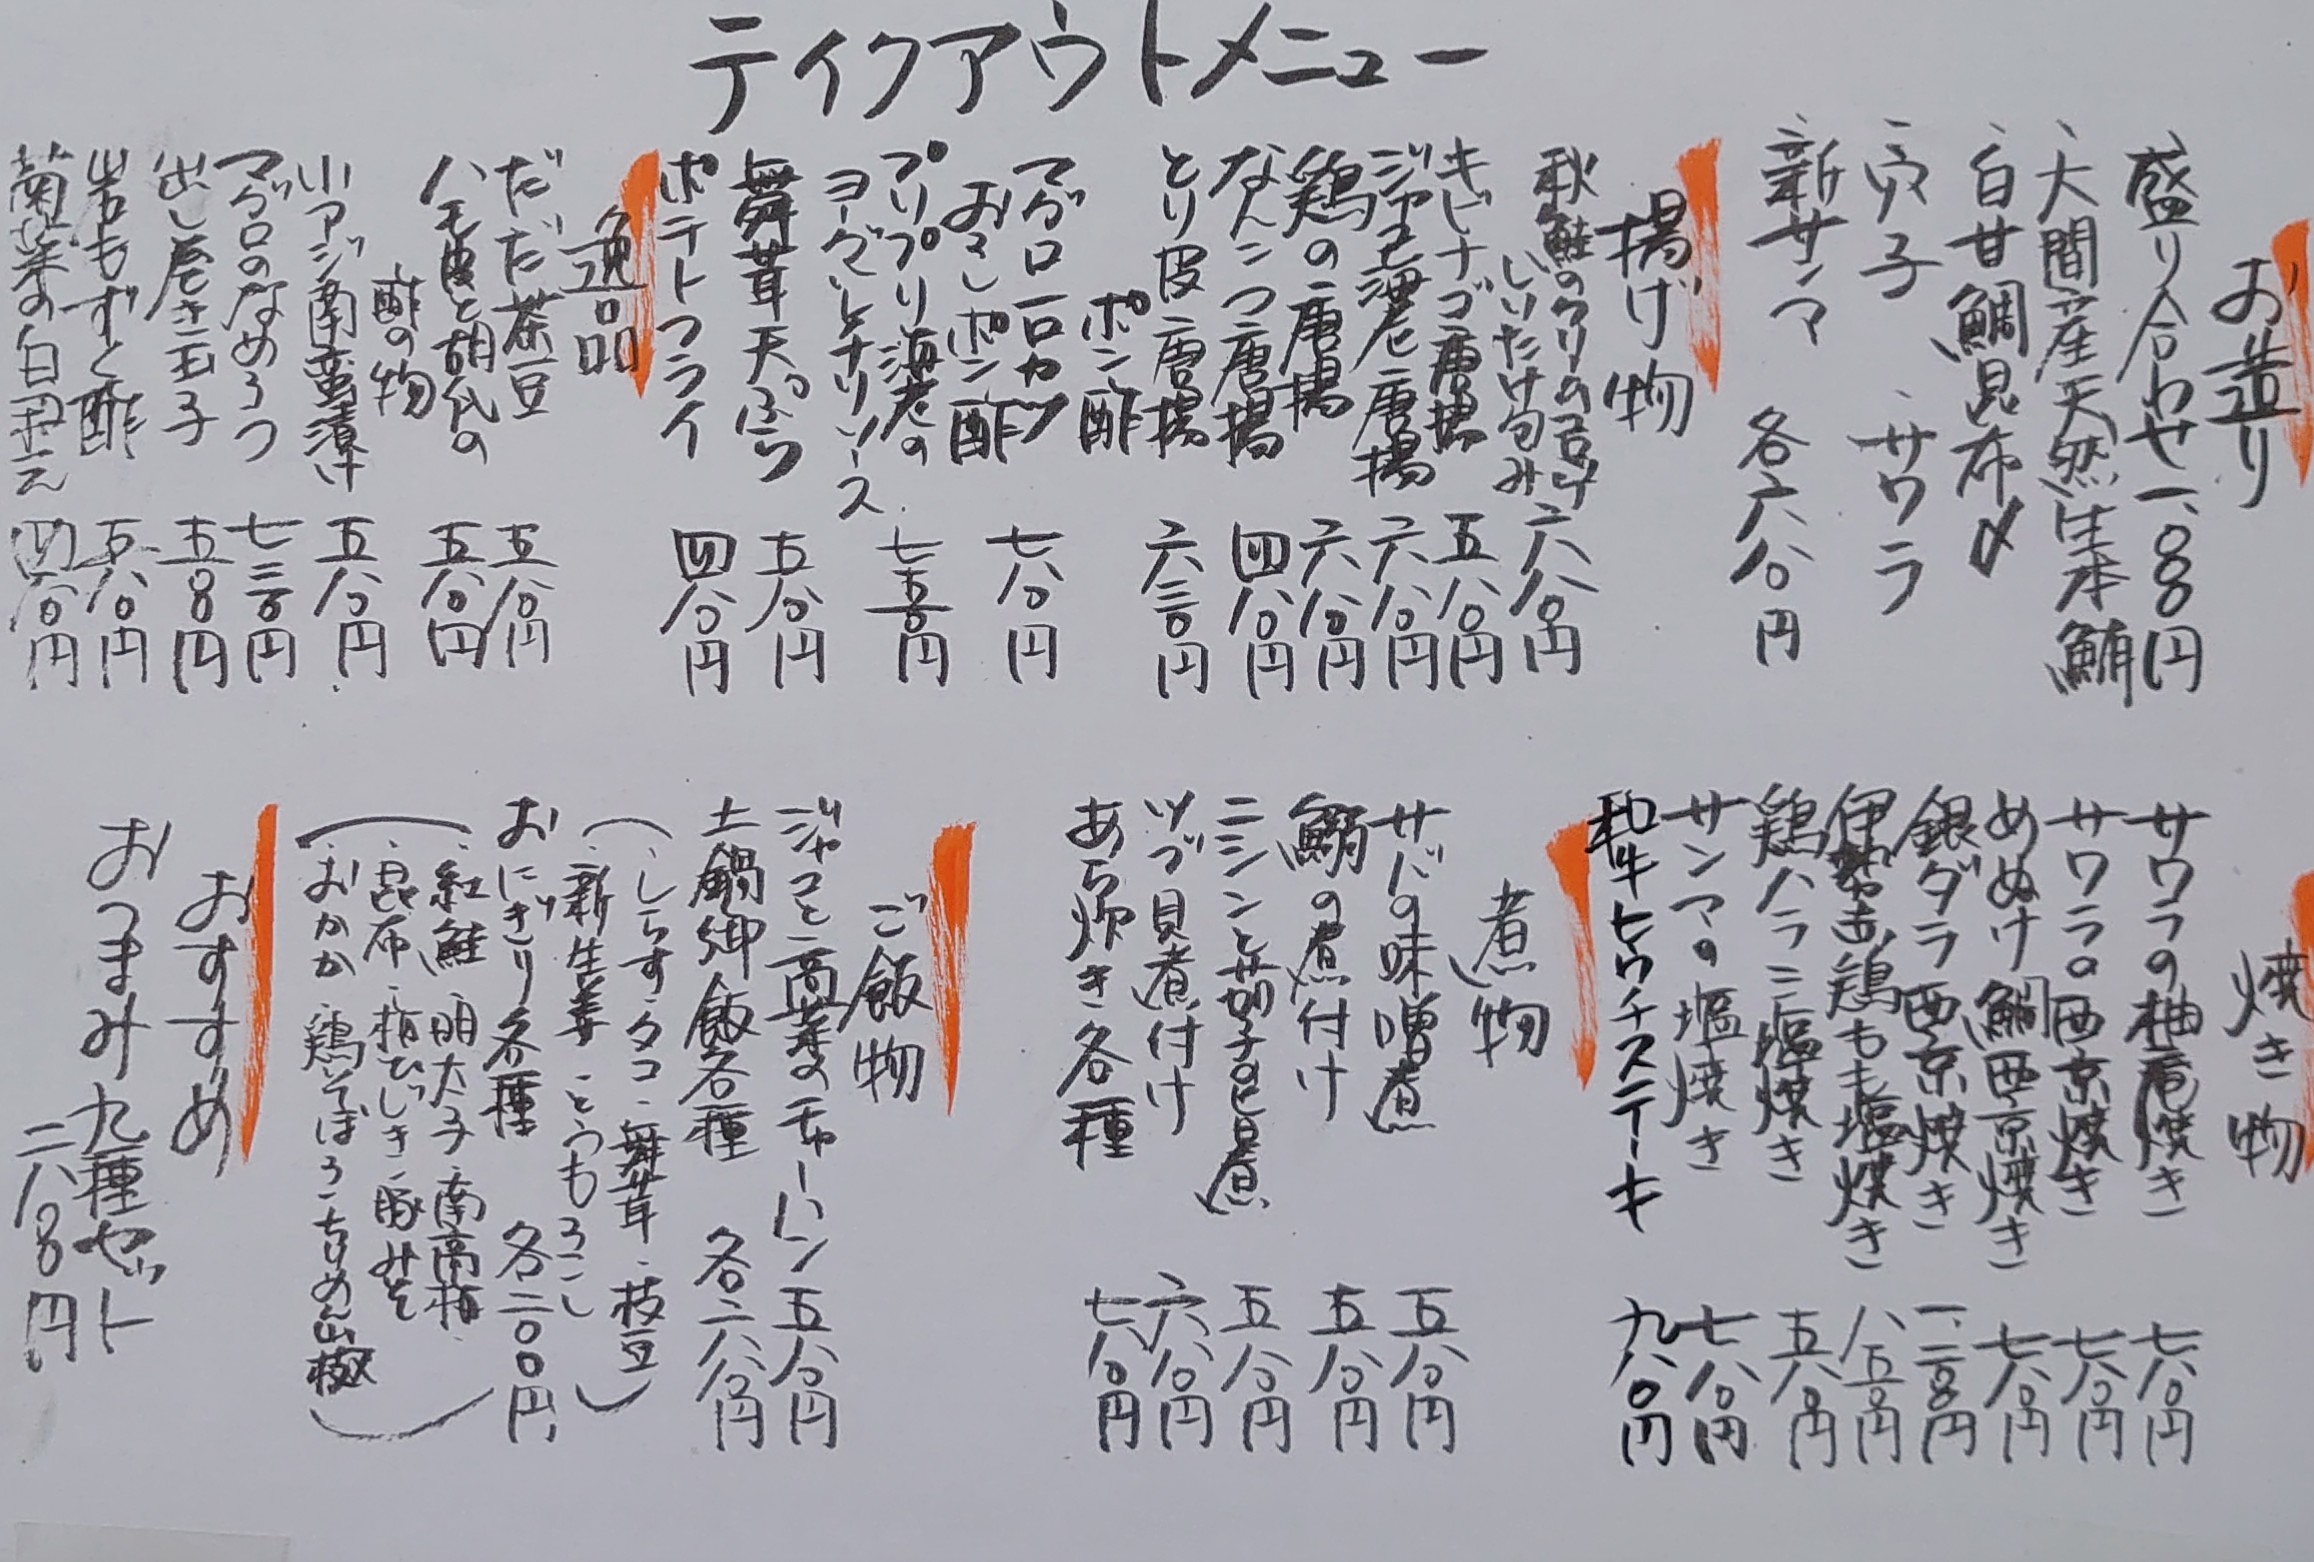 ティクアウトメニュー
お造り
盛り合わせ 一、八〇〇円
、大間産天然生本鮪
、白甘鯛昆布〆
、穴子 、サワラ
、新サンマ 各六八〇円
揚げ物
秋鮭の
しいたけ包み 六八〇円
キビナゴ唐揚 五八〇円
唐揚 六八〇円
鶏の唐揚 六八〇円
なんこつ唐揚 四八〇円
とり皮唐揚 六三〇円
ポン酢
マグロ一口カツ 七八〇円
おろしポン酢
プリプリ海老の 七五〇円
ヨーグルトチリソース
舞茸天ぷら 五八〇円
ポテトフライ 四八〇円
逸品
だだ茶豆 五八〇円
ハモ皮と胡瓜の 五八〇円
酢の物
小アジ南蛮漬け 五八〇円
マグロのなめろう 七三〇円
出し巻き玉子 五五〇円
岩もずく酢 五八〇円
菊菜の白和え 四八〇円
焼き物
サワラの柚庵焼き 七八〇円
サワラの西京焼き 七八〇円
めぬけ鯛西京焼き 七八〇円
銀ダラ西京焼き 一、二八〇円
伊勢赤鶏もも塩焼き 八五〇円
鶏ハラミ塩焼き 五八〇円
サンマの塩焼き 七八〇円
和牛ヒウチステーキ 九八〇円
煮物
サバの味噌煮 五八〇円
鰯の煮付け 五八〇円
ニシンと茄子の煮 五八〇円
ツブ貝煮付け 六八〇円
あら炊き各種 七八〇円
ご飯物
ジャコと高菜のチャーハン 五八〇円
土鍋御飯各種 各二八〇〇円
(、しらすタコ、舞茸、枝豆
、新生姜 とうもろこし)
おにぎり各種 各二〇〇円
(、紅鮭、明太子、南高梅、
、昆布、梅ひじき、豚みそ
、おかか 鶏そぼろ、ちりめん山椒)
おすすめ
おつまみ九種セット
二八〇〇円